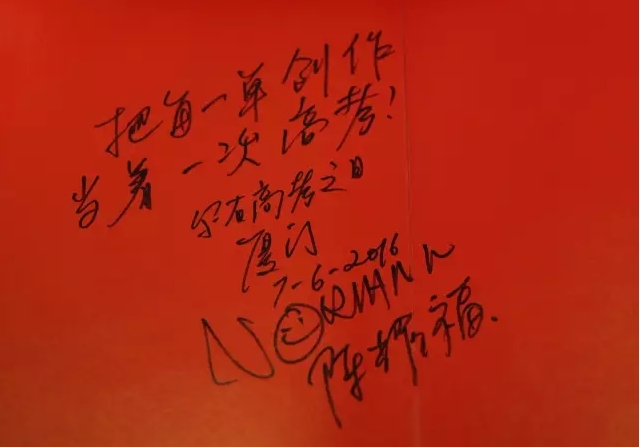 把每一单创作
当着一次高考!
写在高考之日
厦门
7-6-2016
NORMAN
陈辉福.